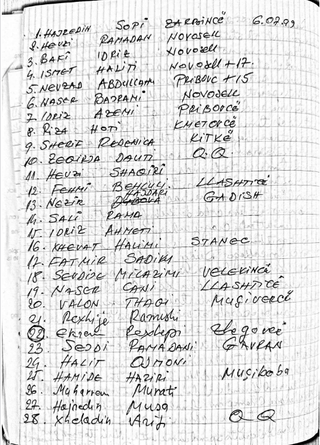 1. HAJREDIN SOPI ZARBINCË 6.07.99
2. HEVZI RAMADAN NOVOSELL
3. BAFI IDRIZ NOVOSELL
4. ISMET HALITI NOVOSELL + 17.
5. NEVZAD ABDULLAHI PRIBOVC + 15
6. NASER BAJRAMI NOVOSELL
7. IDRIZ AZEMI PRIBOVCË
8. RIZA HOTI KMETOVCË
9. SHERIF REDENICA KITKË
10. ZEQIRJA DAUTI Q.Q
11. HEVZI SHAQIRI
12. FEHMI BEHLULI LLASHTICË
13. NEZIR HAJDARI GADISH
14. SALI RAMA
15. IDRIZ AHMETI
16. XHEVAT HALIMI STANEC
17. FATMIR SADIKU
18. SEVDIJE MILAZIMI VELEKINCË
19. NASER CANI LLASHTICË
20. VALON THAQI MUQIVERCË
21. Rexhije Ramushi
22. Ekrem Rexhepi Zhegovc
23. SEJDI RAMADANI GAVRAN
24. HALIT OSMONI
25. HAMIDE HAZIRI Muqibaba
26. Muharrem Murati
27. Hajredin Musa
28. Xheladin Arifi Q Q